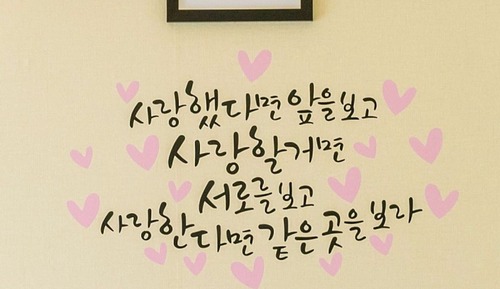 사랑했다면 앞을보고
사랑할거면
서로를보고
사랑한다면 같은곳을보라